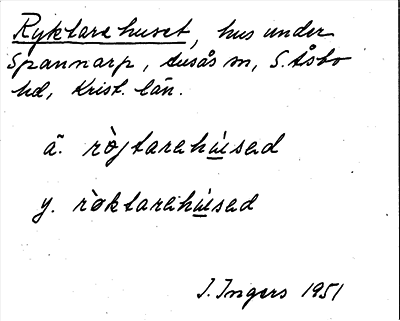 Ryktarehuset, hus under
Spannarp, Ausås sn, S. Åsbo
hd, Krist. län.
ä. rò̤jtarehúsed
y. rò̤ktarehúsed
J. Ingers 1951